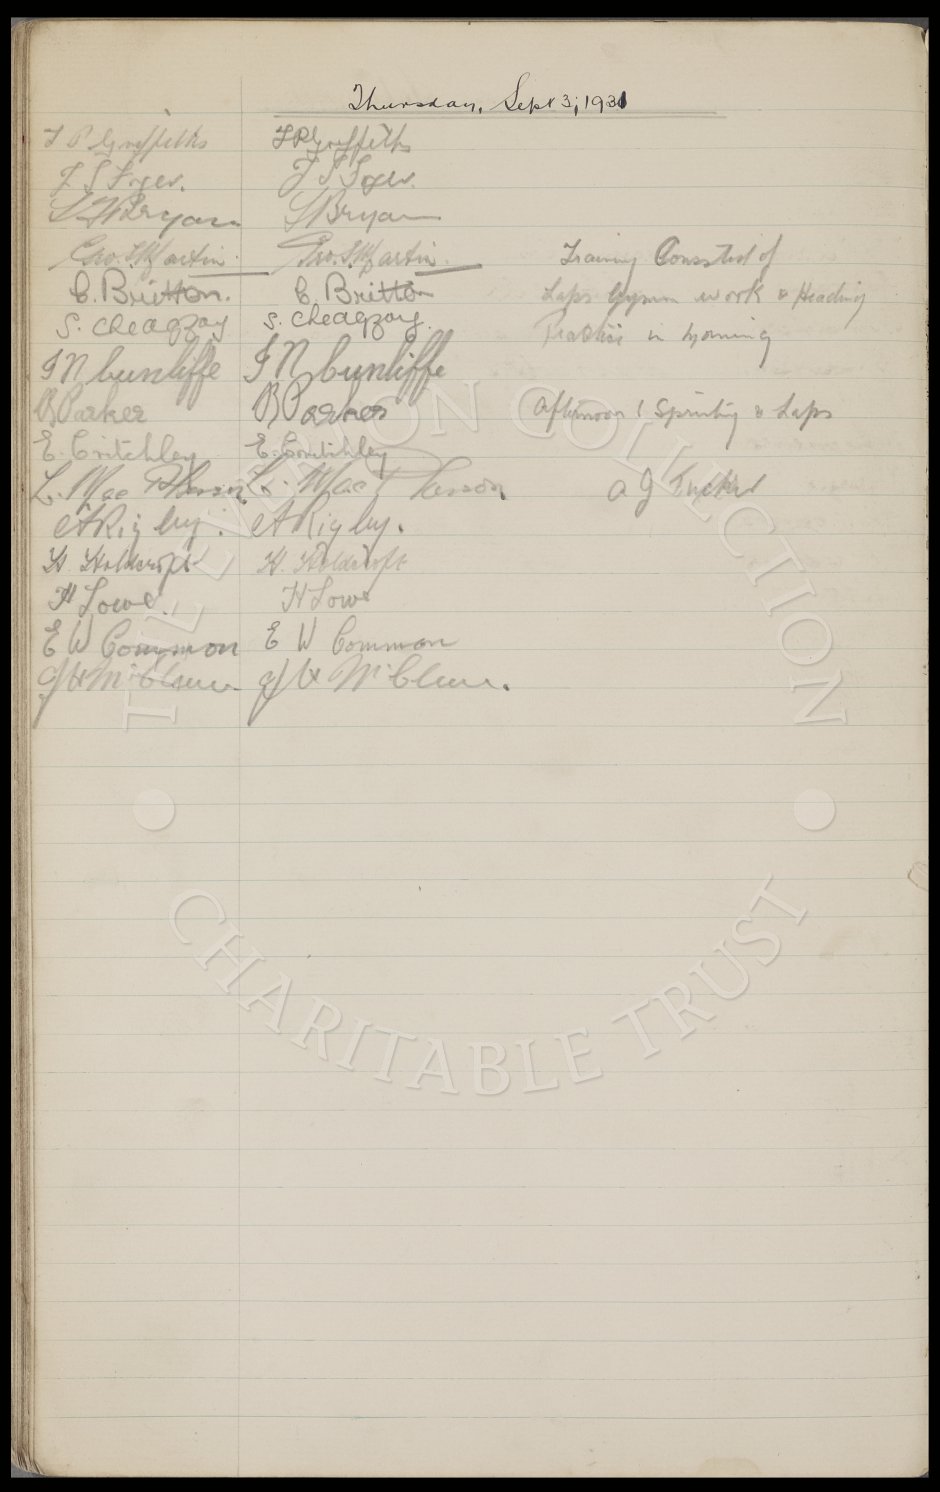 Thursday, Sept 3, 1931
T P Griffiths T P Griffiths
J S Fryer. J S Fryer.
L W Bryan L Bryan
Geo. S. Martin. Geo. S. Martin.
Training Consisted of
C. Britton. C. Britton
Laps Gymn work & Heading
S. Cheadgzoy S. Cheadgzoy.
Practice in Morning
J N Cunliffe J N Cunliffe
B Parker B Parker
Afternoon! Sprinting & Laps
E. Critchley E. Critchley
L. MacPherson L. MacPherson
A J Tucker
A Rigby. A Rigby.
H. Holdcroft H. Holdcroft
H Lowe. H Lowe
E W Common E W Common
J W McClure J W McClure.
THE EVERTON COLLECTION
CHARITABLE TRUST